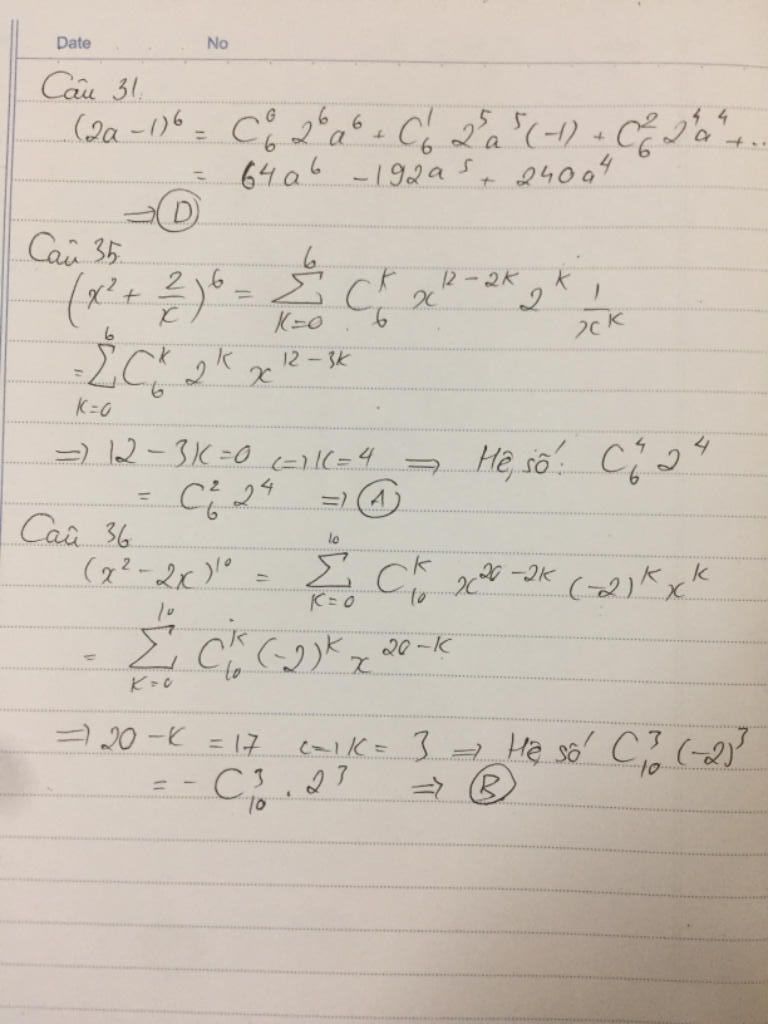 Date No
Câu 31.
(2a - 1)^6 = C_6^0 2^6 a^6 + C_6^1 2^5 a^5 (-1) + C_6^2 2^4 a^4 + ..
= 64a^6 - 192a^5 + 240a^4
=> D
Câu 35.
(x^2 + 2/x)^6 = ∑_{K=0}^{6} C_6^K x^{12-2K} 2^K 1/x^K
= ∑_{K=0}^{6} C_6^K 2^K x^{12-3K}
=> 12 - 3K = 0 <=> K = 4 => Hệ số: C_6^4 2^4
= C_6^2 2^4 => A
Câu 36
(x^2 - 2x)^{10} = ∑_{K=0}^{10} C_{10}^K x^{20-2K} (-2)^K x^K
= ∑_{K=0}^{10} C_{10}^K (-2)^K x^{20-K}
=> 20 - K = 17 <=> K = 3 => Hệ số C_{10}^3 (-2)^3
= - C_{10}^3 . 2^3 => B